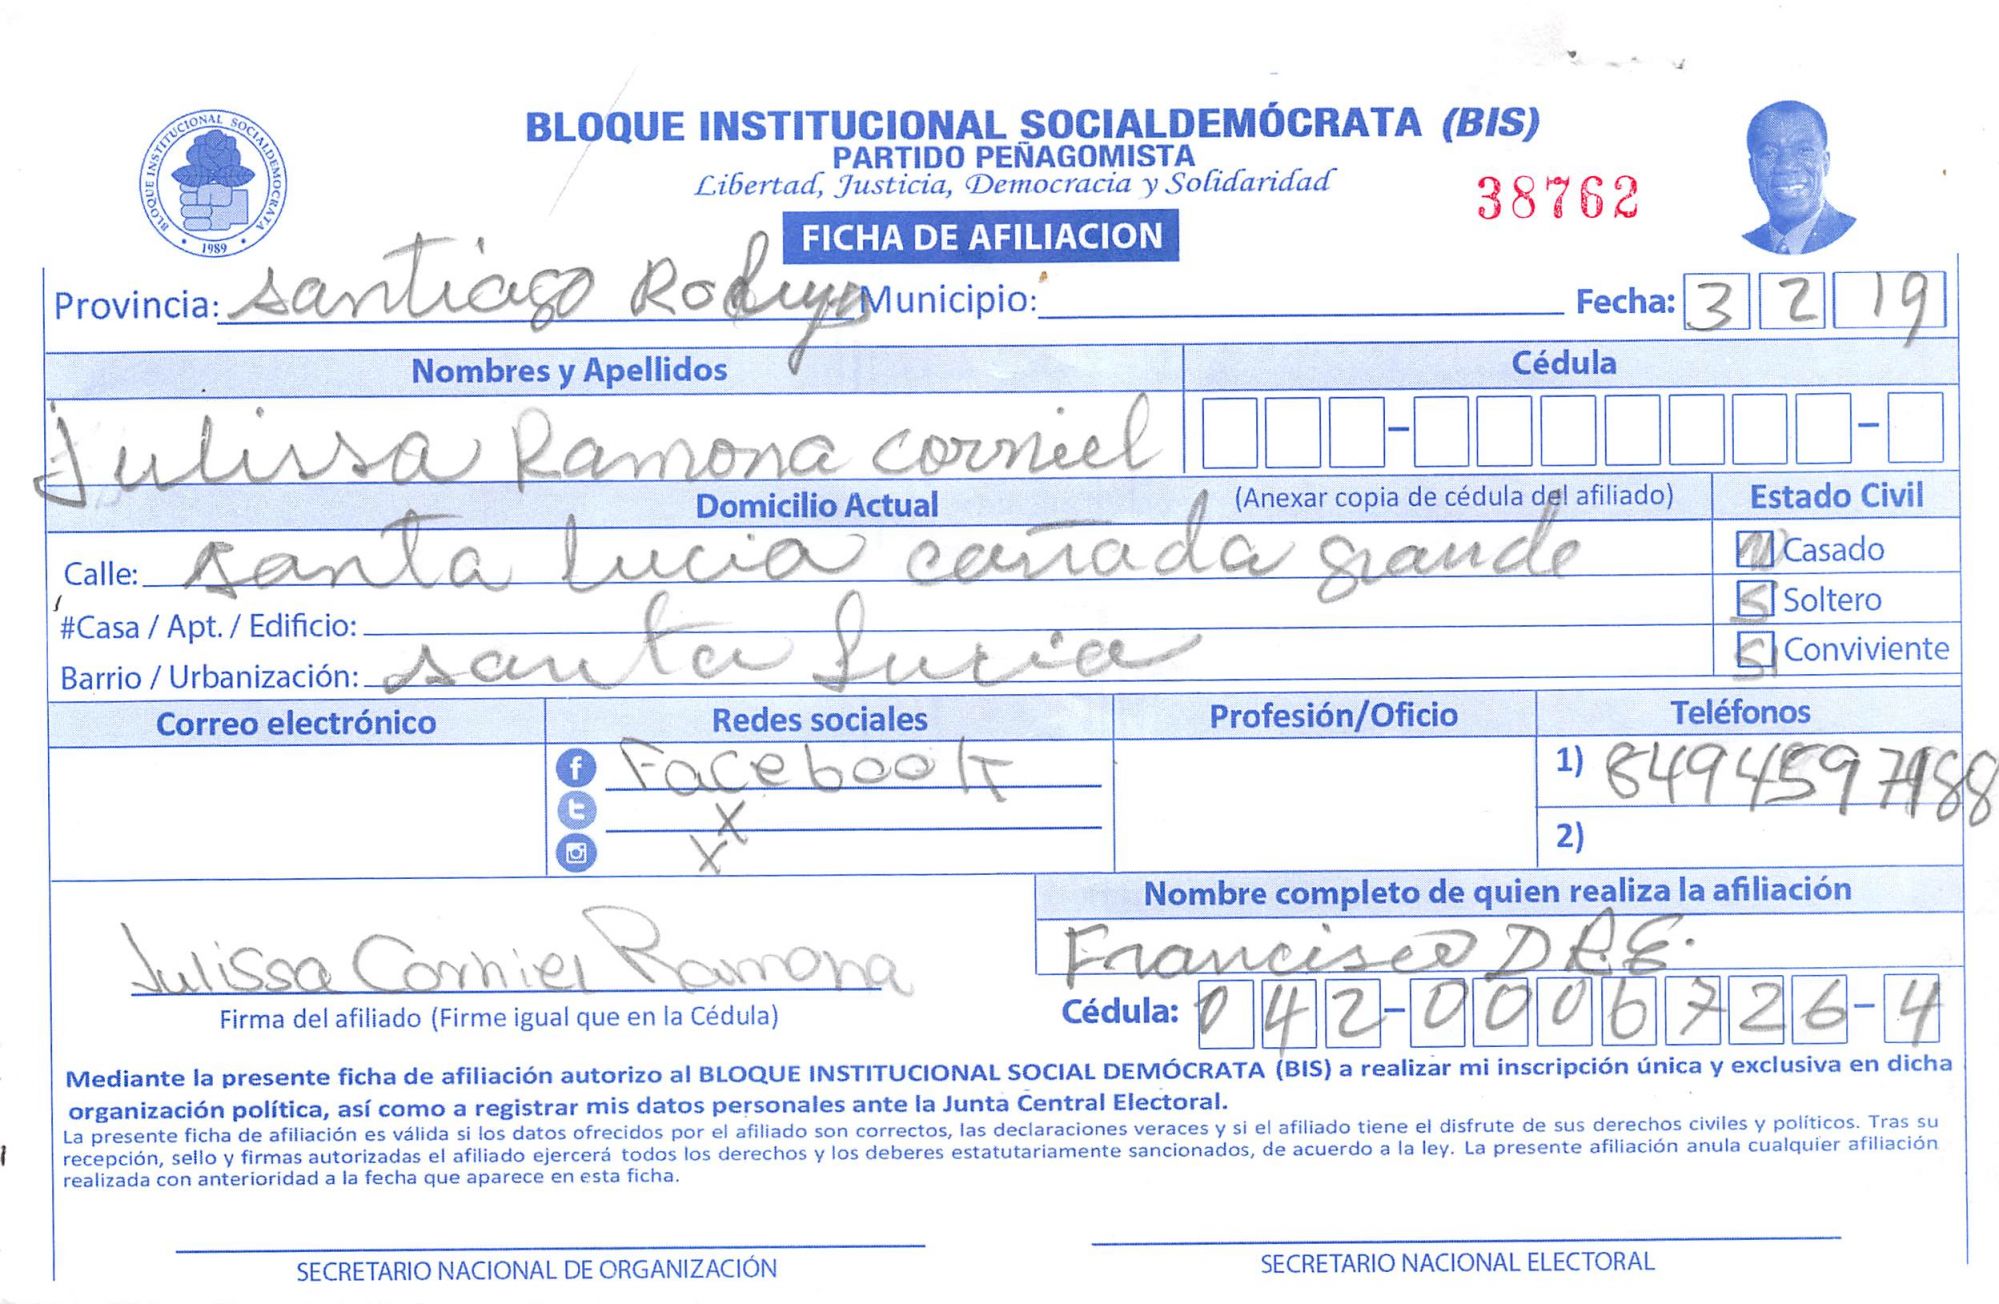 BLOQUE INSTITUCIONAL SOCIALDEMÓCRATA (BIS)
PARTIDO PEÑAGOMISTA
Libertad, Justicia, Democracia y Solidaridad
38762
BLOQUE INSTITUCIONAL SOCIALDEMOCRATA
1989
FICHA DE AFILIACION
Provincia: Santiago Municipio: Fecha: 3 2 19
Nombres y Apellidos Cédula
Julissa Ramona Corniel
Domicilio Actual (Anexar copia de cédula del afiliado) Estado Civil
Calle: santa lucia cañada grande N Casado
#Casa / Apt. / Edificio: S Soltero
Barrio / Urbanización: santa Lucia S Conviviente
Correo electrónico Redes sociales Profesión/Oficio Teléfonos
Facebook 1)
X
X 2)
Nombre completo de quien realiza la afiliación
Francisco D.R.E.
Julissa Corniel Ramona
Firma del afiliado (Firme igual que en la Cédula) Cédula: 042-0006726-4
Mediante la presente ficha de afiliación autorizo al BLOQUE INSTITUCIONAL SOCIAL DEMÓCRATA (BIS) a realizar mi inscripción única y exclusiva en dicha
organización política, así como a registrar mis datos personales ante la Junta Central Electoral.
La presente ficha de afiliación es válida si los datos ofrecidos por el afiliado son correctos, las declaraciones veraces y si el afiliado tiene el disfrute de sus derechos civiles y políticos. Tras su
recepción, sello y firmas autorizadas el afiliado ejercerá todos los derechos y los deberes estatutariamente sancionados, de acuerdo a la ley. La presente afiliación anula cualquier afiliación
realizada con anterioridad a la fecha que aparece en esta ficha.
SECRETARIO NACIONAL DE ORGANIZACIÓN SECRETARIO NACIONAL ELECTORAL